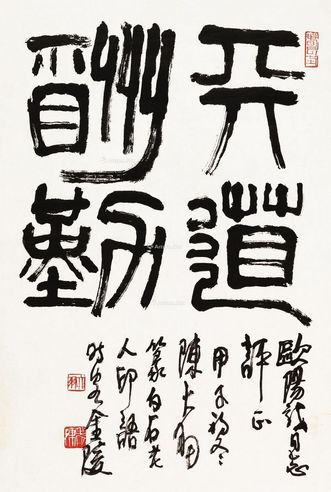 天道
酬勤
歐陽龍同志
評正
甲子初冬
陳大羽
篆白石老
人印語
時客金陵